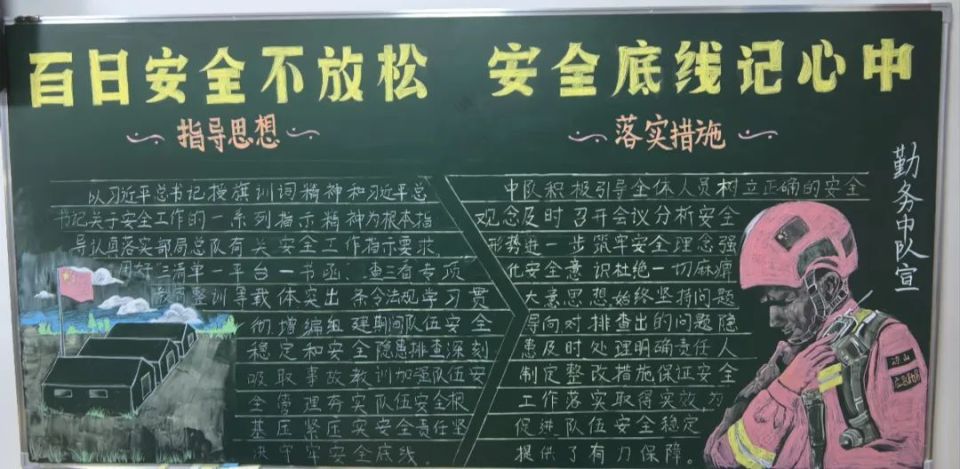 百日安全不放松 安全底线记心中
指导思想
以习近平总书记授旗训词精神和习近平总
书记关于安全工作的一系列指示精神为根本指
导认真落实部局总队有关安全工作指示要求,
用好"三清单一平台一书函、查三看专项
教育整训等载体突出 条令法规学习贯
彻增编组建期间队伍安全
稳定和安全隐患排查深刻
吸取事故教训加强队伍安
全管理夯实队伍安全根
基压紧压实安全责任坚
决守牢安全底线.
落实措施
中队积极引导全体人员树立正确的安全
观念及时召开会议分析安全
形势进一步筑牢安全理念强
化安全意识杜绝一切麻痹
大意思想,始终坚持问题
导向对排查出的问题隐
患及时处理明确责任人
制定整改措施保证安全
工作落实取得实效,为
促进队伍安全稳定
提供了有力保障。
勤务中队宣
凉山